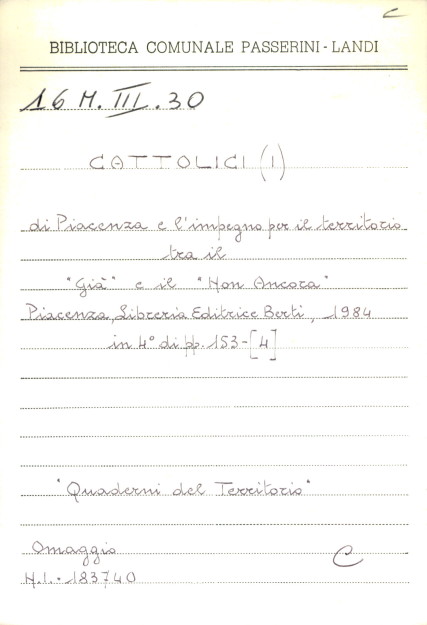 C
BIBLIOTECA COMUNALE PASSERINI - LANDI
16 M. III. 30
CATTOLICI (I)
di Piacenza e l'impegno per il territorio
tra il
"Già" e il "Non Ancora"
Piacenza, Libreria Editrice Berti, 1984
in 4° di pp. 153-[4]
"Quaderni del Territorio"
Omaggio
C
N.I. 183740